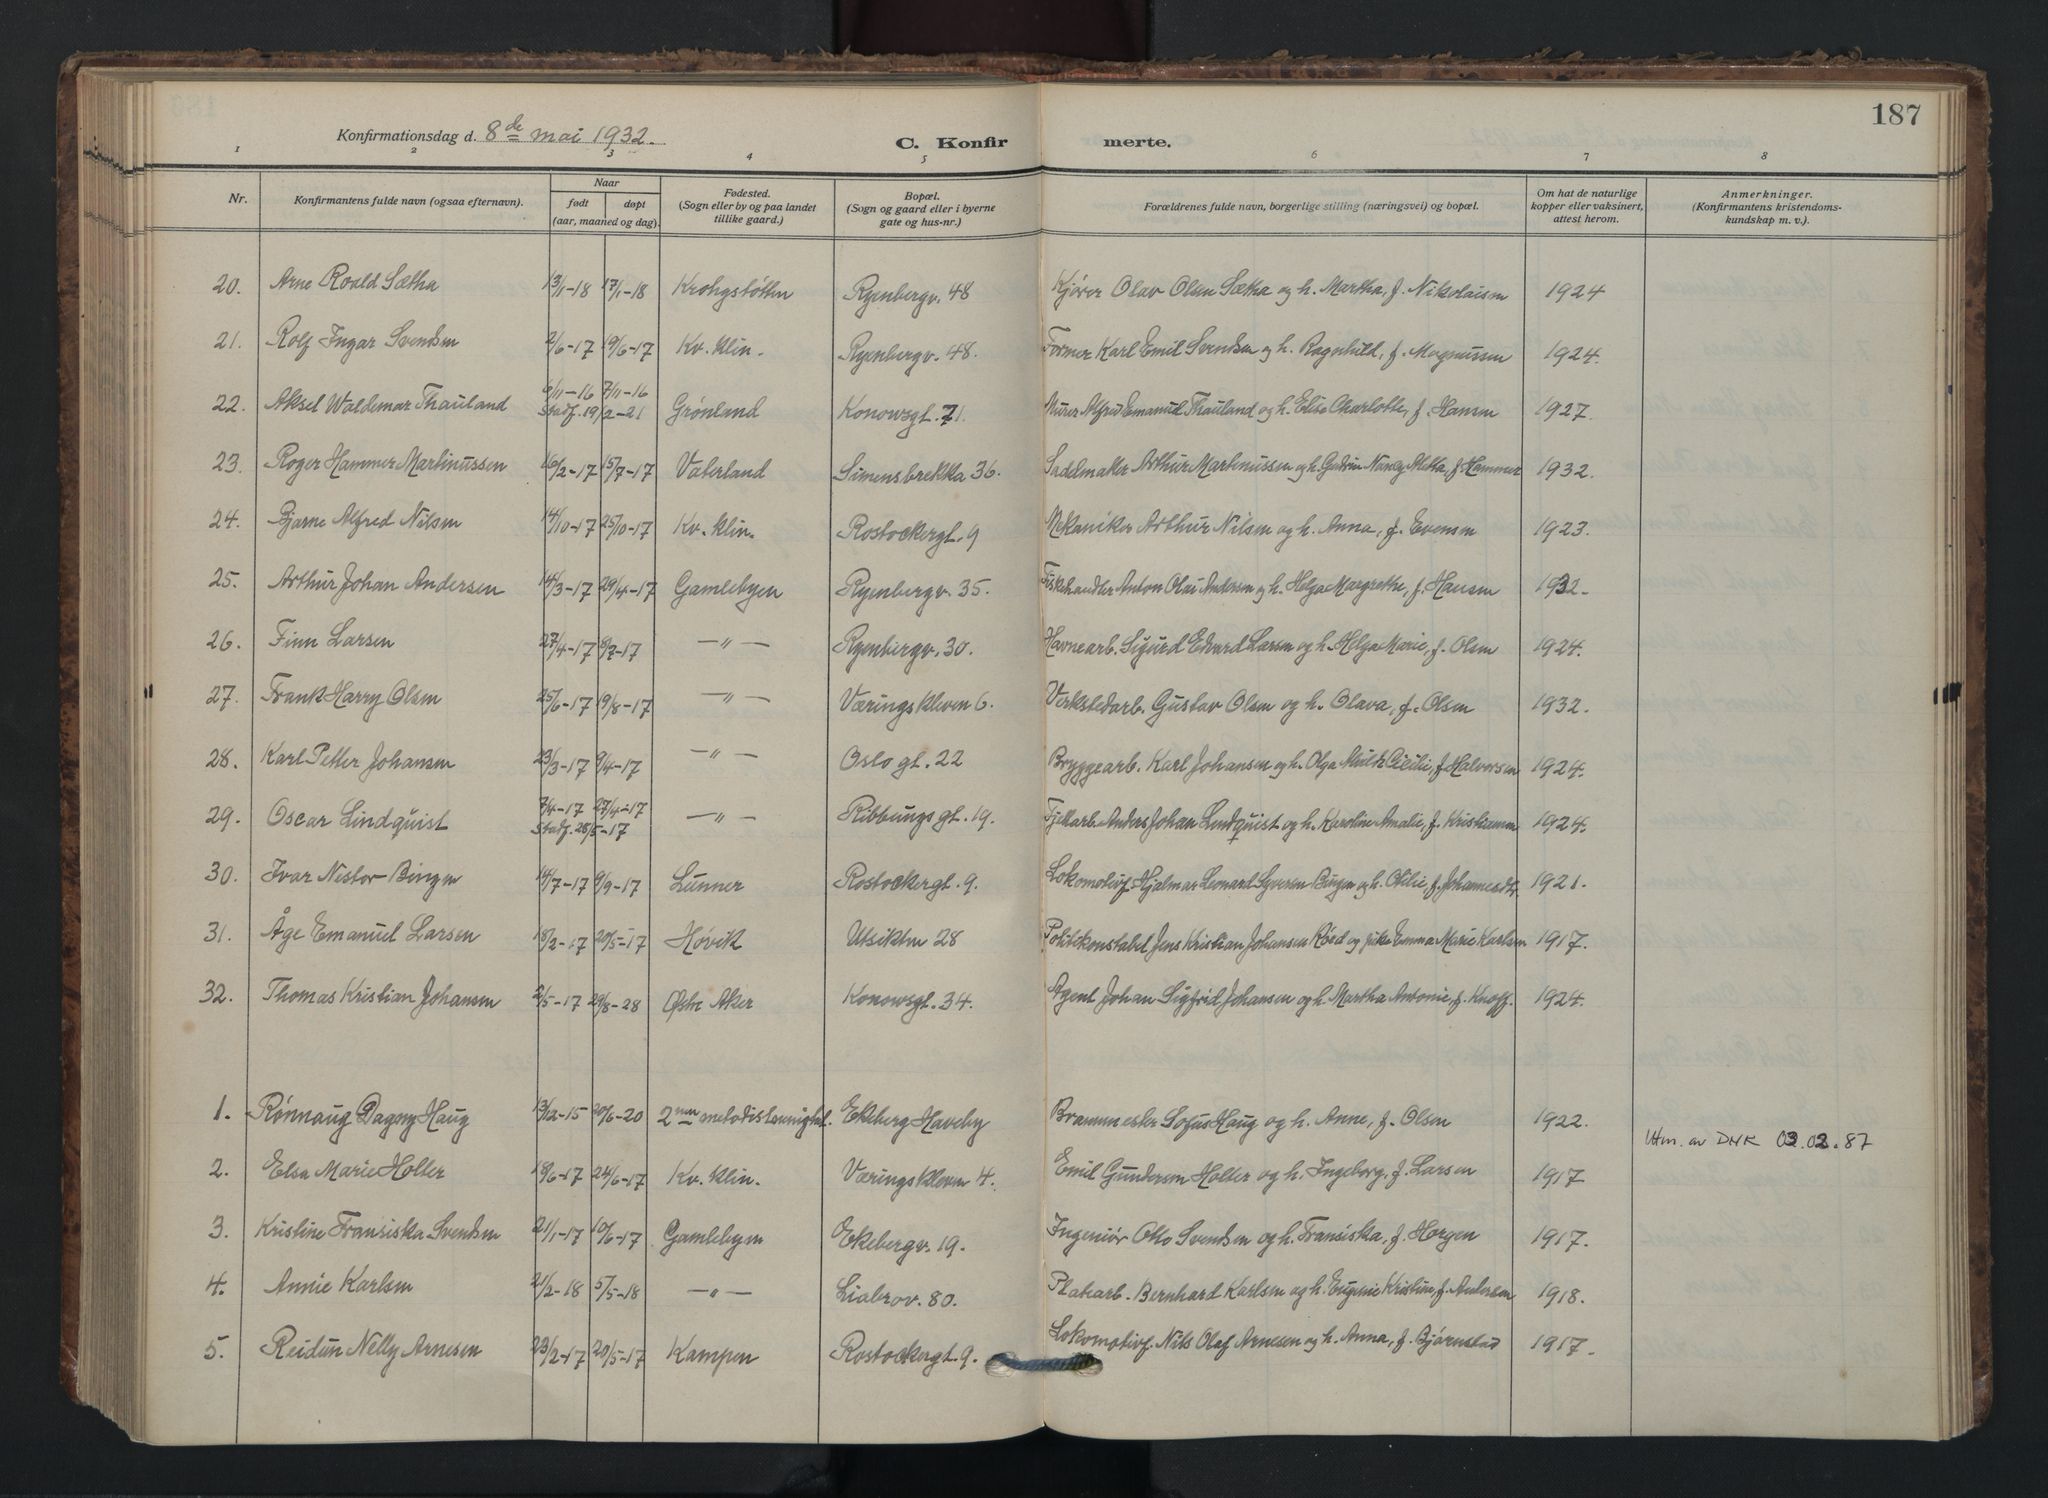 187
Konfirmationsdag d. 8de mai 1932.
C. Konfirmerte.
1 2 3 4 5 6 7 8
Nr. Konfirmantens fulde navn (ogsaa efternavn). Naar født døpt (aar, maaned og dag). Fødested. (Sogn eller by og paa landet tillike gaard.) Bopæl. (Sogn og gaard eller i byerne gate og hus-nr.) Forældrenes fulde navn, borgerlige stilling (næringsvei) og bopæl. Om hat de naturlige kopper eller vaksinert, attest herom. Anmerkninger. (Konfirmantens kristendomskundskap m. v.).
20. Arne Roald Sætha 13/1-18 17/1-18 Krohgstøtten Ryenbergv. 48 Kjører Olav Olsen Sætha og h. Martha, f. Nikolaisen 1924
21. Rolf Ingar Svendsen 2/6-17 19/6-17 Kv. klin. Ryenbergv. 48. Former Karl Emil Svendsen og h. Ragnhild, f. Magnussen 1924.
22. Aksel Waldemar Thauland 6/11-16 7/11-16 Stadf. 19/2-21 Grønland Konowsgt. 71. Murer Alfred Emanuel Thauland og h. Elise Charlotte, f. Hansen 1927.
23. Roger Hammer Martinussen 16/2-17 15/7-17 Vaterland Simensbrekka 36. Sadelmaker Arthur Martinussen og h. Gudrun Nancy Aletta, f. Hammer 1932.
24. Bjarne Alfred Nilsen 14/10-17 25/10-17 Kv. klin. Rostockergt. 9 Mekaniker Arthur Nilsen og h. Anna, f. Evensen 1923.
25. Arthur Johan Andersen 14/3-17 29/4-17 Gamlebyen Ryenbergv. 35. Fiskehandler Anton Olai Andersen og h. Helga Margrethe, f. Hansen 1932-
26. Finn Larsen 27/4-17 8/7-17 —"— Ryenbergv. 30. Havnearb. Sigurd Edvard Larsen og h. Helga Marie, f. Olsen 1924.
27. Frank Harry Olsen 25/6-17 19/8-17 —"— Væringskleven 6. Verkstedarb. Gustav Olsen og h. Olava, f. Olsen 1932.
28. Karl Petter Johansen 23/3-17 9/4-17 —"— Oslo gt. 22 Bryggearb. Karl Johansen og h. Olga Cecilie, f. Halvorsen 1924.
29. Oscar Lindquist 7/4-17 27/4-17 Stadf. 28/5-17 —"— Ribbungsgt. 19. Fjellarb. Anders Johan Lindquist og h. Karoline Amalie, f. Kristiansen 1924.
30. Ivar Nestor Bingen 14/7-17 9/9-17 Lunner Rostockergt. 9. Lokomotivf. Hjalmar Leonard Syversen Bingen og h. Otilie, f. Johannesdtr. 1921.
31. Åge Emanuel Larsen 18/2-17 20/5-17 Høvik Utsikten 28 Politikonstabel Jens Kristian Johansen Röed og pike Emma Marie Karlsen 1917.
32. Thomas Kristian Johansen 2/5-17 29/8-28 Østre Aker Konowsgt. 34. Agent Johan Sigfrid Johansen og h. Martha Antonie, f. Knoff. 1924.
1. Rønnaug Dagny Haug 13/12-15 20/6-20 2nen metodistmenighet. Ekeberg Haveby Brannmester Sofus Haug og h. Anne, f. Olsen 1922.
Utm. av DNK 03.02.87
2. Elsa Marie Holter 18/6-17 24/6-17 Kv. klin. Væringskleven 4. Emil Gundersen Holter og h. Ingeborg, f. Larsen 1917
3. Kristine Fransiska Svendsen 21/1-17 10/6-17 Gamlebyen Ekebergv. 19. Ingeniør Otto Svendsen og h. Fransiska, f. Horgen 1917.
4. Annie Karlsen 21/2-18 5/5-18 —"— Liabrov. 80. Platearb. Bernhard Karlsen og h. Eugenie Kristine, f. Andersen 1918.
5. Reidun Nelly Arnesen 23/2-17 20/5-17 Kampen Rostockergt. 9. Lokomotivf. Nils Olaf Arnesen og h. Anna, f. Bjørnstad 1917.